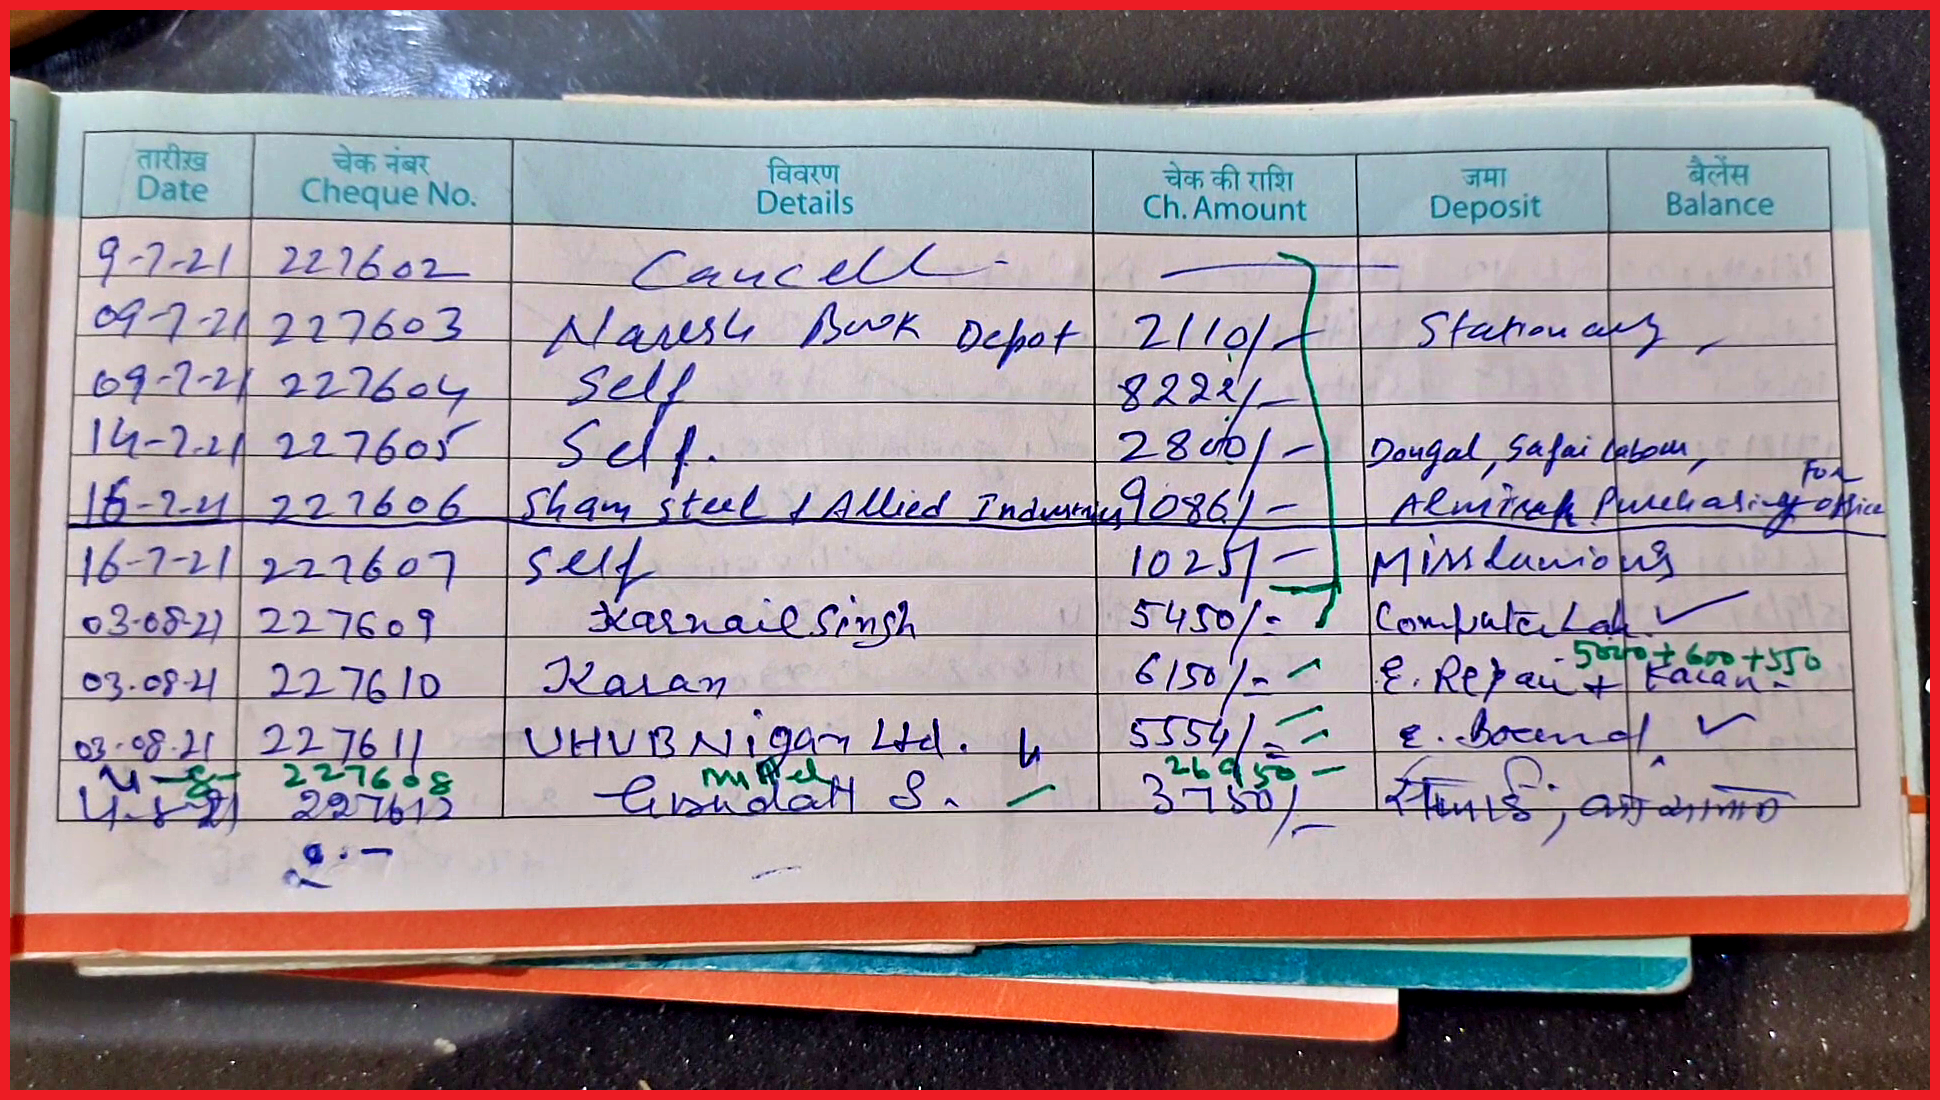 तारीख़ चेक नंबर विवरण चेक की राशि जमा बैलेंस
Date Cheque No. Details Ch. Amount Deposit Balance
9-7-21 227602 Cancell
09-7-21 227603 Naresh Book Depot 2110/- Stationary
09-7-21 227604 Self 8222/-
14-7-21 227605 Self. 2800/- Dangal, Safai labour,
16-7-21 227606 Sham Steel & Allied Industries 9086/- Almirah Purchasing For office
16-7-21 227607 Self 1025/-
03-08-21 227609 Karnail Singh 5450/- Computer Lab.
5000+600+550
03.08.21 227610 Karan 6150/- E. Repair + Karan
03.08.21 227611 UHVBNigam Ltd. 5554/- E.
227608 26950-
4-8-21 227612 S. 3750/-